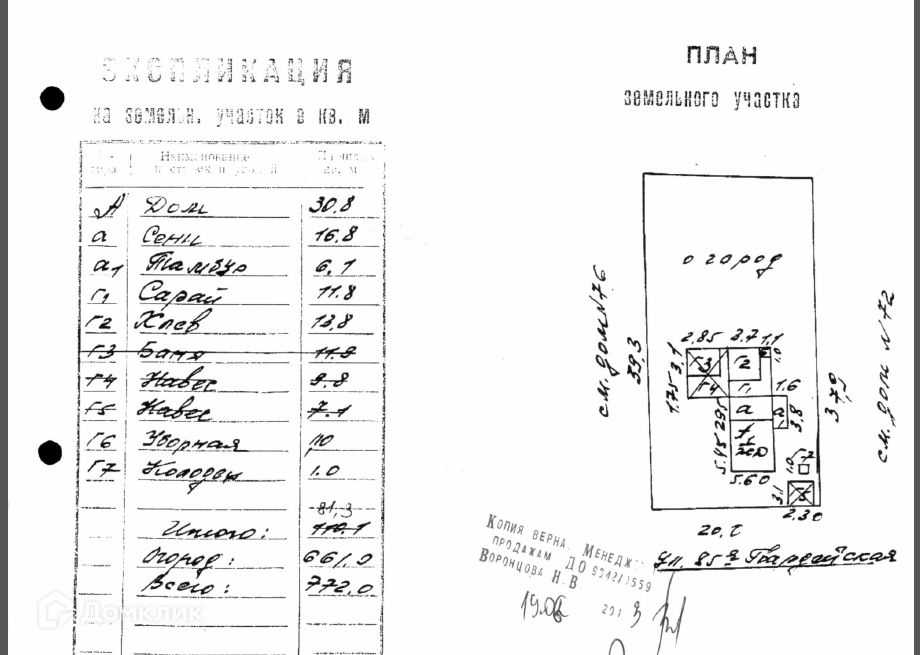 ЭКСПЛИКАЦИЯ
на земельн. участок в кв. м
Наименование
кв. м
А Дом 30.8
а Сени 16.8
а1 Тамбур 6.1
Г1 Сарай 11.8
Г2 Хлев 13.8
Г3 Баня 11.9
Г4 Навес 9.8
Г5 Навес 7.1
Г6 Уборная 1.0
Г7 Колодец 1.0
81,3
Итого:
Огород: 661.0
Всего: 772.0
Домклик
ПЛАН
земельного участка
огород
см. дом N 76
39.3
2.85 3.7 1.1
3.1 Г3 Г2 1.0
1.75 Г4 Г1 1.6
а а1 3.8
5.45
5.60
1.0 Г7
3.1 Г5
2.30
см. дом N 72
20.
ул. 85я Гвардейская
КОПИЯ ВЕРНА. МЕНЕДЖ
ПРОДАЖАМ ДО 9042/0559
ВОРОНЦОВА Н.В
201 3